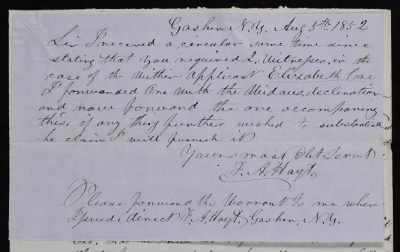 Goshen N.Y. Aug 5th 1852
Sir I received a circular some time since
stating that you required 2 Witnesses, in the
case of the Within Applicant Elizabeth Coe
I forwarded one with the Widows declaration
and now forward the one accompanying
this, if any thing further wished to substantiate
he claim I will furnish it
Yours most Obt Servt
F. A. Hoyt
Please forward the Warrant to me when
direct F. A. Hoyt, Goshen, N.Y.